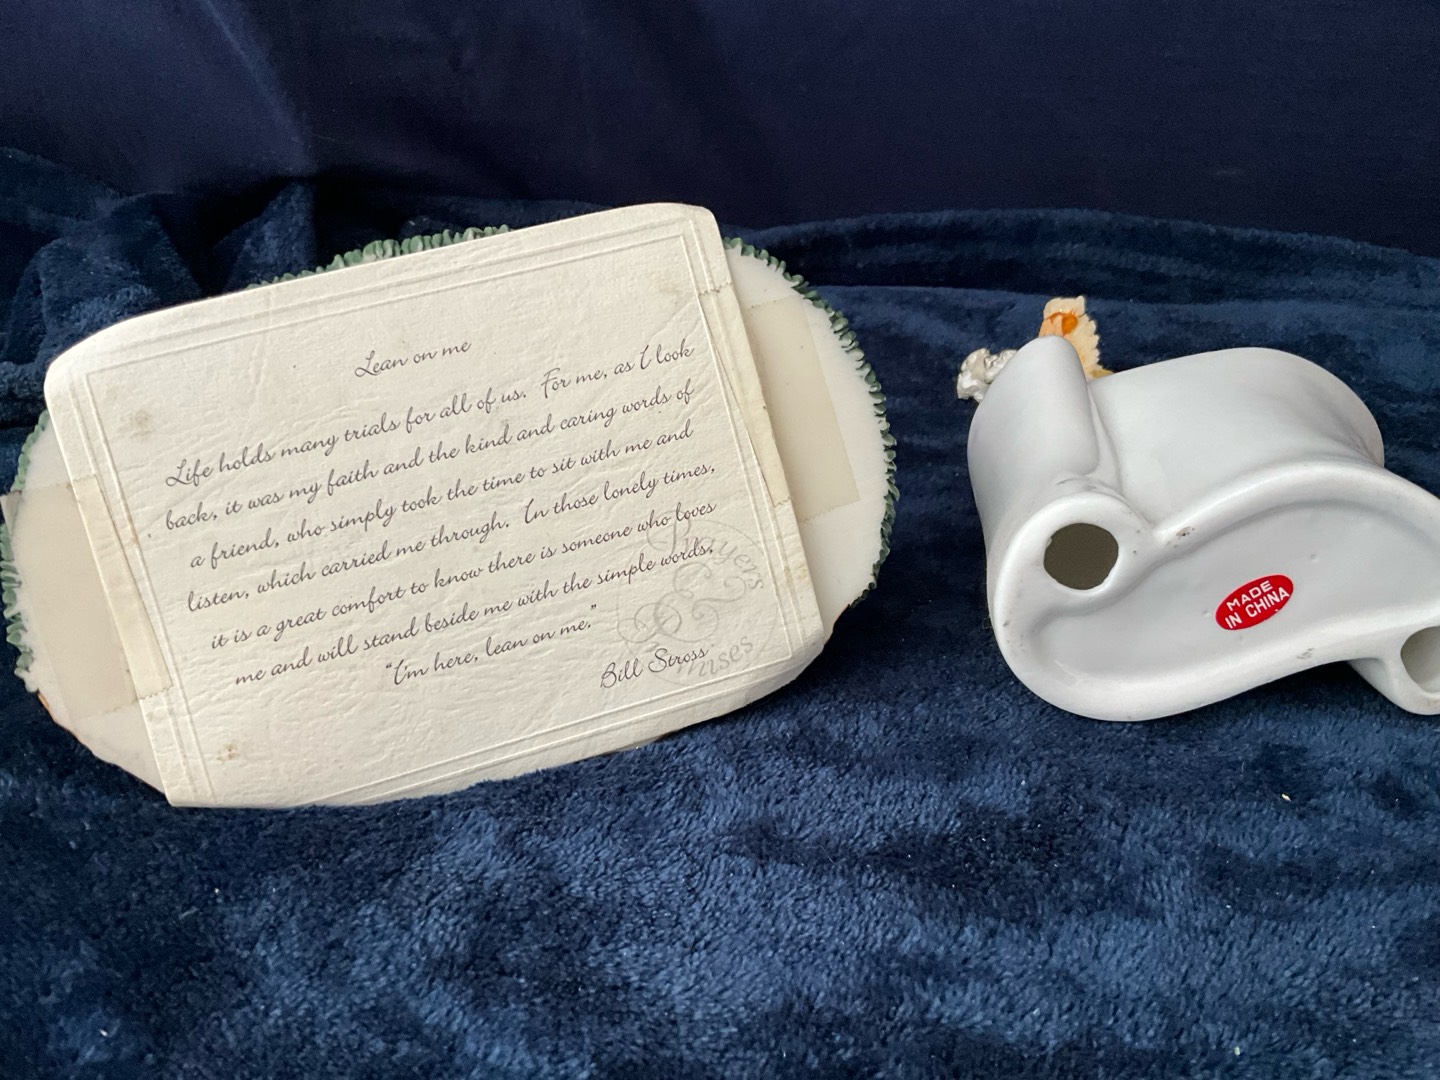 Lean on me
Life holds many trials for all of us. For me, as I look
back, it was my faith and the kind and caring words of
a friend, who simply took the time to sit with me and
listen, which carried me through. In those lonely times,
it is a great comfort to know there is someone who loves
me and will stand beside me with the simple words,
"I'm here, lean on me."
Bill Stross
Prayers
MADE
IN CHINA